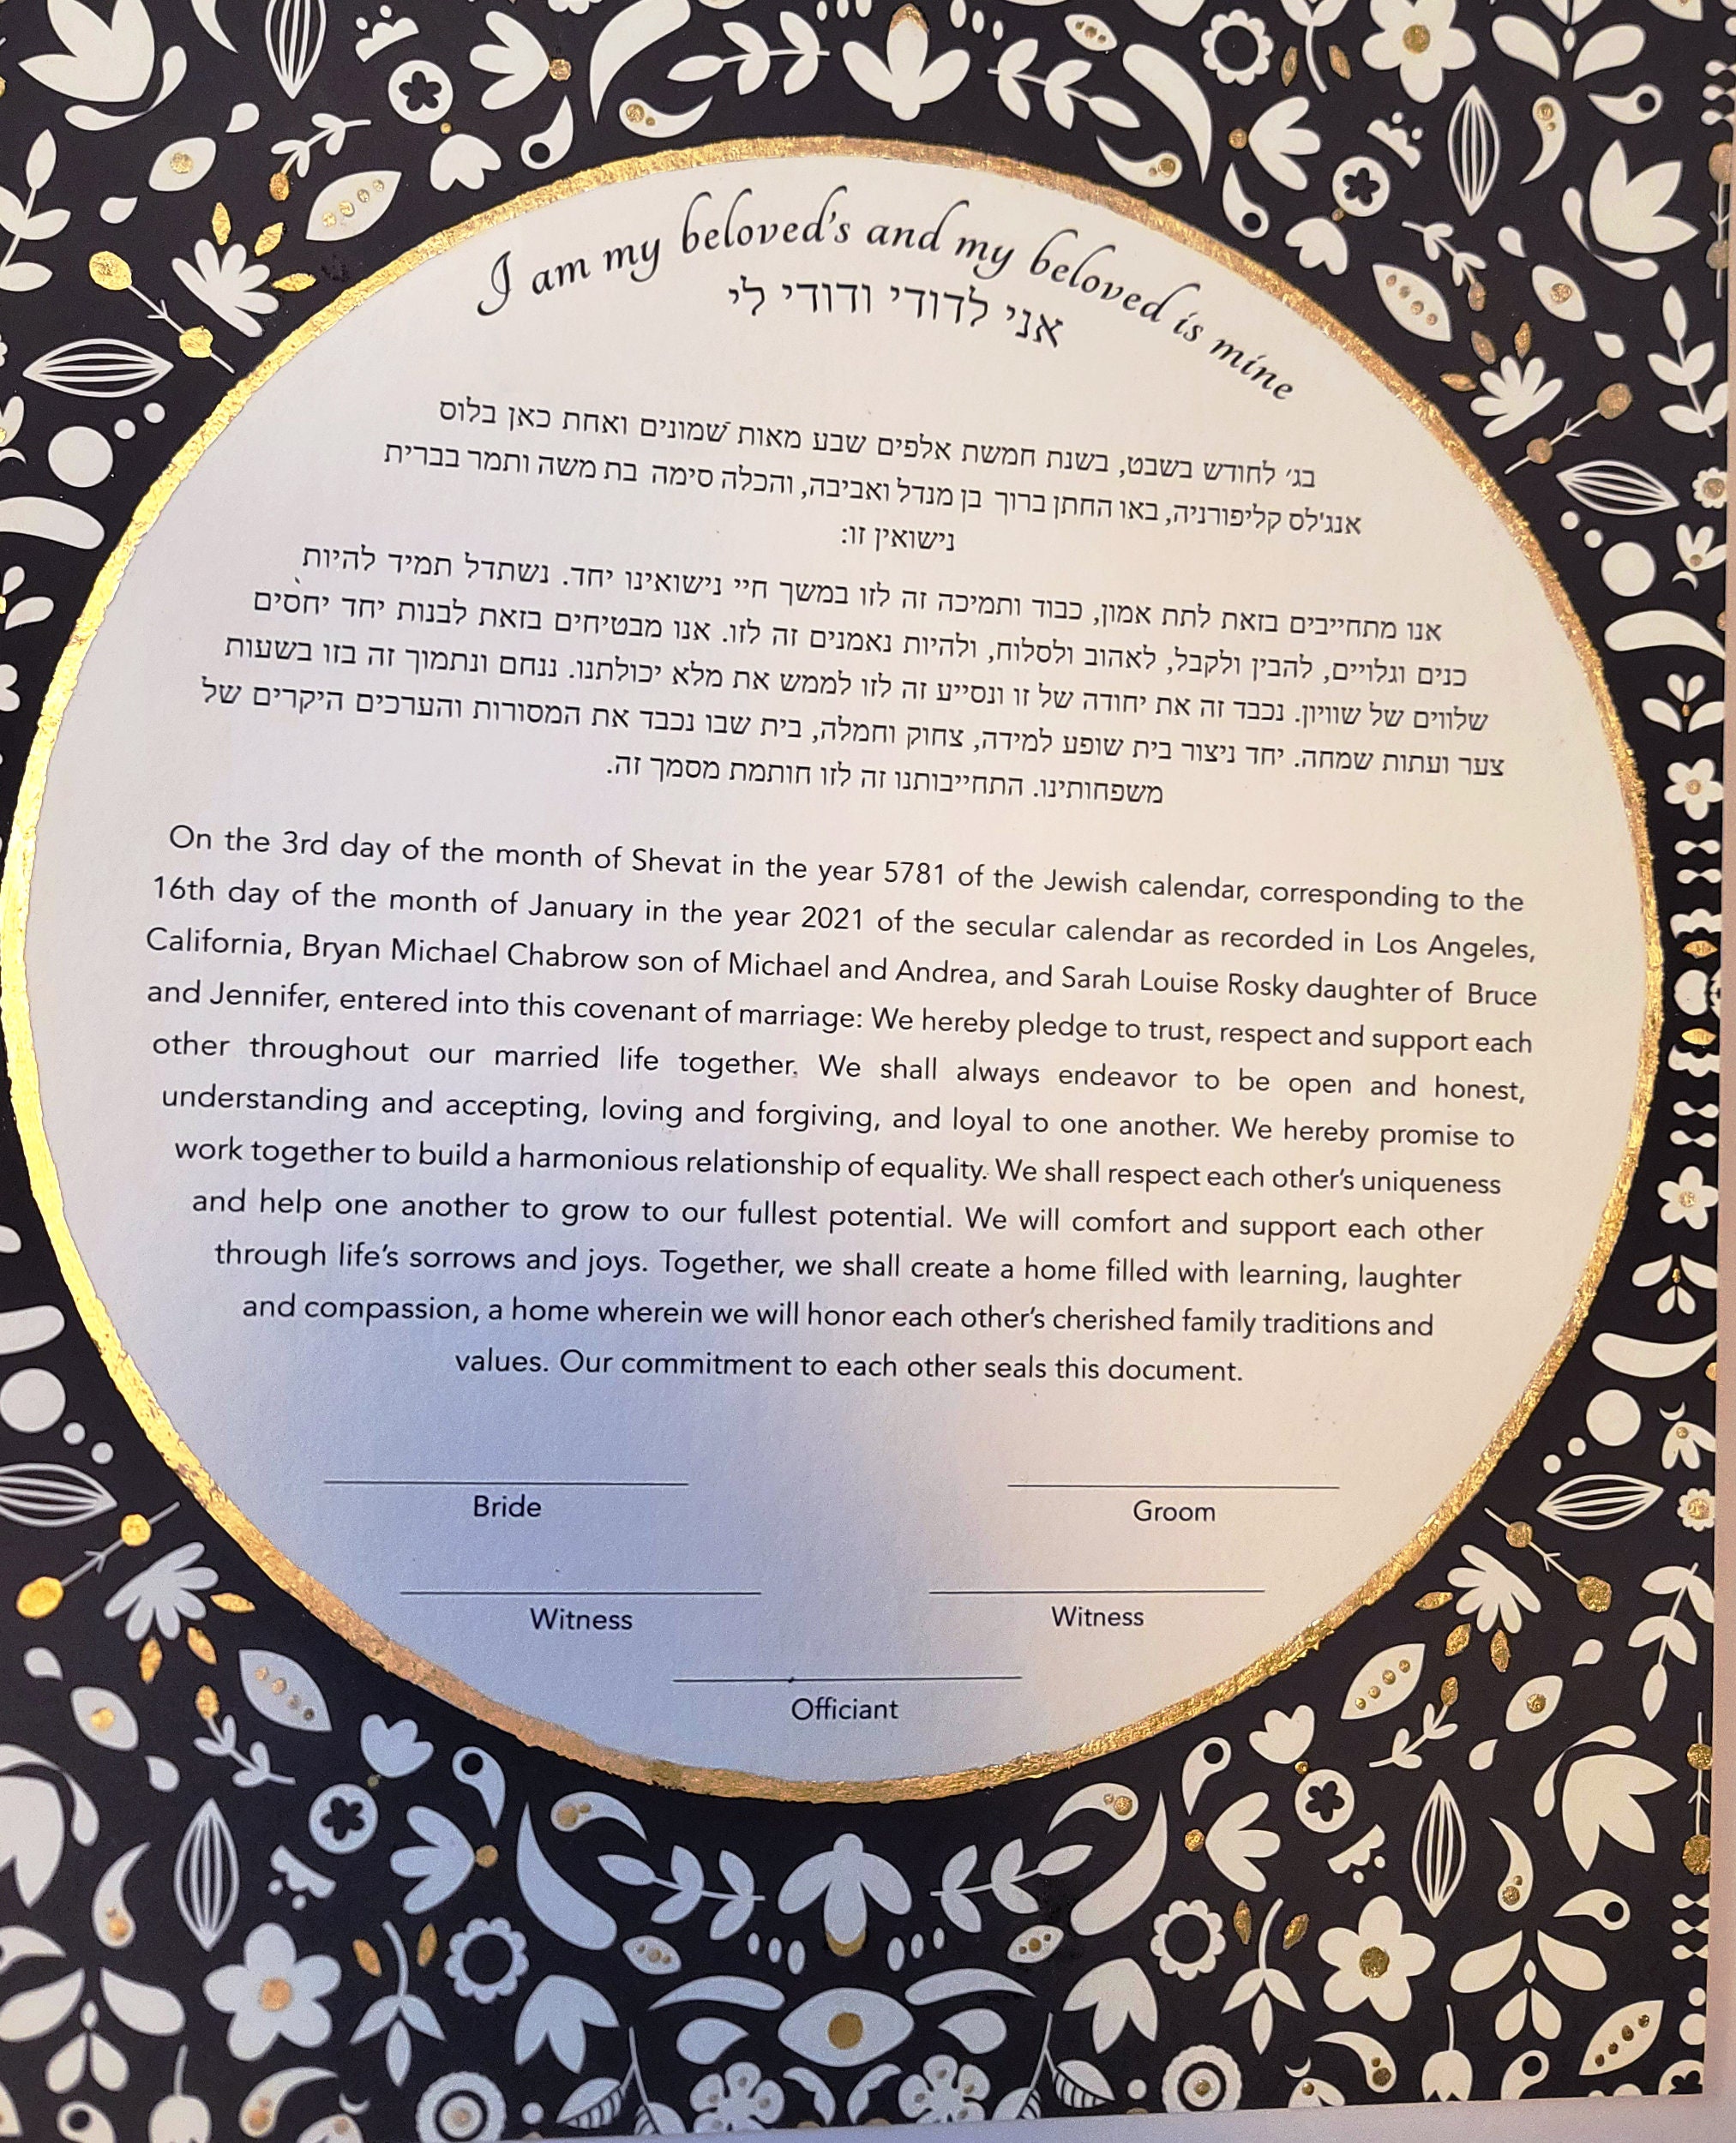 I am my beloved's and my beloved is mine
אני לדודי ודודי לי
בג׳ לחודש בשבט, בשנת חמשת אלפים שבע מאות שמונים ואחת כאן בלוס
אנג'לס קליפורניה, באו החתן ברוך בן מנדל ואביבה, והכלה סימה בת משה ותמר בברית
נישואין זו:
אנו מתחייבים בזאת לתת אמון, כבוד ותמיכה זה לזו במשך חיי נישואינו יחד. נשתדל תמיד להיות
כנים וגלויים, להבין ולקבל, לאהוב ולסלוח, ולהיות נאמנים זה לזו. אנו מבטיחים בזאת לבנות יחד יחסים
שלווים של שוויון. נכבד זה את יחודה של זו ונסייע זה לזו לממש את מלא יכולתנו. ננחם ונתמוך זה בזו בשעות
צער ועתות שמחה. יחד ניצור בית שופע למידה, צחוק וחמלה, בית שבו נכבד את המסורות והערכים היקרים של
משפחותינו. התחייבותנו זה לזו חותמת מסמך זה.
On the 3rd day of the month of Shevat in the year 5781 of the Jewish calendar, corresponding to the
16th day of the month of January in the year 2021 of the secular calendar as recorded in Los Angeles,
California, Bryan Michael Chabrow son of Michael and Andrea, and Sarah Louise Rosky daughter of Bruce
and Jennifer, entered into this covenant of marriage: We hereby pledge to trust, respect and support each
other throughout our married life together. We shall always endeavor to be open and honest,
understanding and accepting, loving and forgiving, and loyal to one another. We hereby promise to
work together to build a harmonious relationship of equality. We shall respect each other’s uniqueness
and help one another to grow to our fullest potential. We will comfort and support each other
through life’s sorrows and joys. Together, we shall create a home filled with learning, laughter
and compassion, a home wherein we will honor each other’s cherished family traditions and
values. Our commitment to each other seals this document.
Bride
Groom
Witness
Witness
Officiant